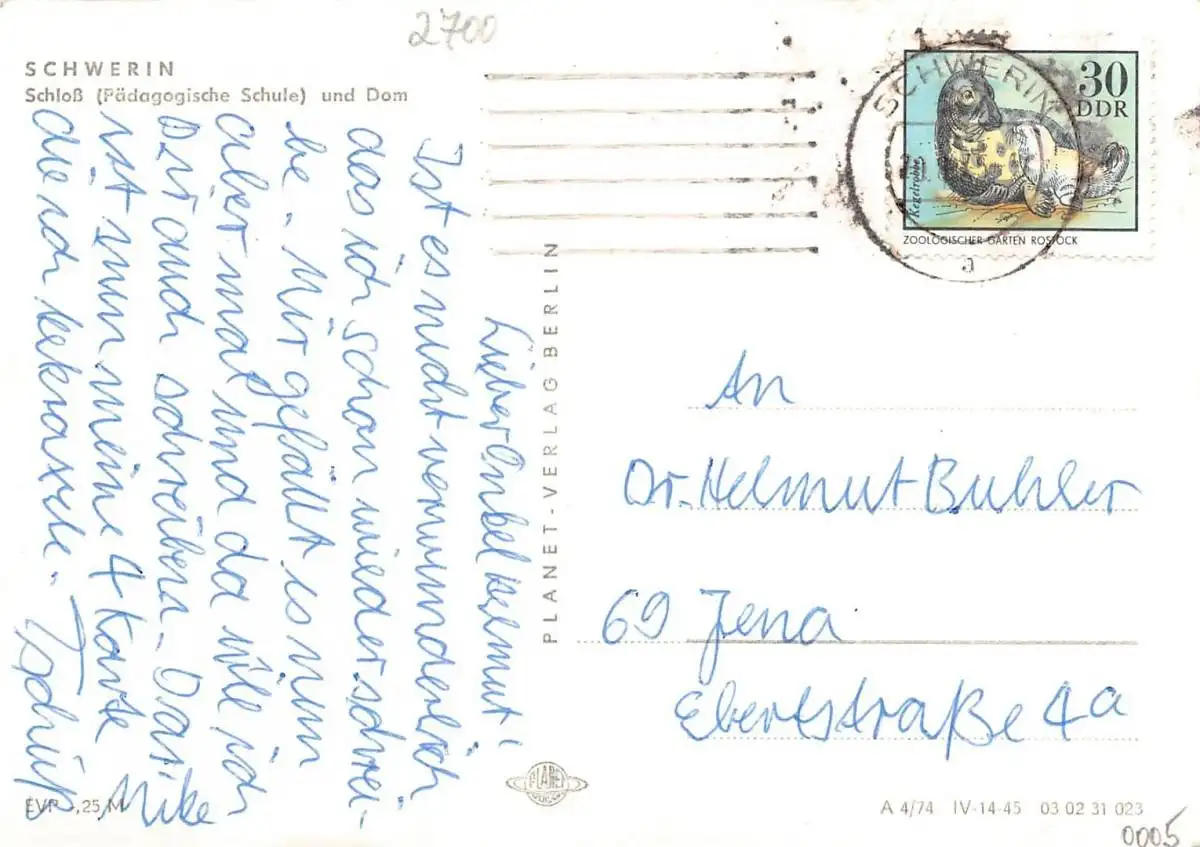 2700
SCHWERIN
Schloß (Pädagogische Schule) und Dom
Lieber Onkel Helmut!
Ist es nicht verwunderlich
das ich schon wieder schrei-
be. Mir gefällt es nun
aber mal und da will ich
Dir auch schreiben. Das
ist nun meine 4 Karte
die ich
Tschüß Mike
EVP -,25 M
PLANET-VERLAG BERLIN
PLANET
SCHWERIN
a
30
DDR
Kegelrobbe
ZOOLOGISCHER GARTEN ROSTOCK
An
Dr. Helmut Buhler
69 Jena
Ebertstraße 4a
A 4/74 IV-14-45 03 02 31 023
0005